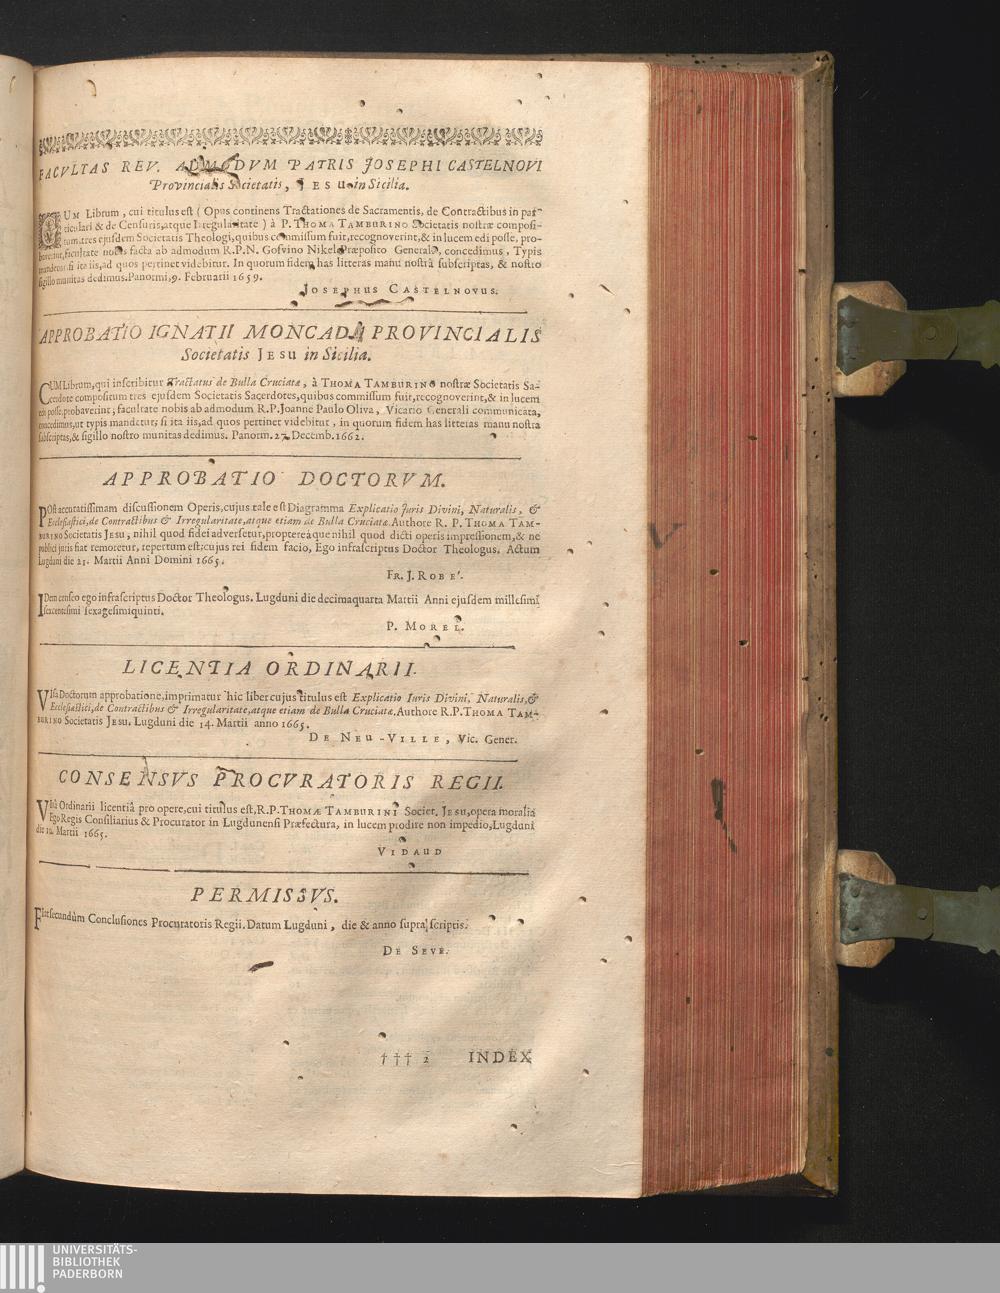 FACVLTAS REV. ADMODVM PATRIS JOSEPHI CASTELNOVI
Provincialis Societatis, JESU in Sicilia.
CUM Librum, cui titulus est ( Opus continens Tractationes de Sacramentis, de Contractibus in par-
ticulari & de Censuris, atque Irregularitate ) à P. THOMA TAMBURINO Societatis nostræ composi-
tum, tres ejusdem Societatis Theologi, quibus commissum fuit, recognoverint, & in lucem edi posse, pro-
baverint, facultate nobis facta ab admodum R.P.N. Gosvino Nikel Præposito Generali, concedimus, Typis
mandetur si ita iis, ad quos pertinet videbitur. In quorum fidem has litteras manu nostrâ subscriptas, & nostro
sigillo munitas dedimus. Panormi, 9. Februarii 1659.
JOSEPHUS CASTELNOVUS.
APPROBATIO IGNATII MONCADÆ PROVINCIALIS
Societatis JESU in Sicilia.
CUM Librum, qui inscribitur Tractatus de Bulla Cruciatæ, à THOMA TAMBURINO nostræ Societatis Sa-
cerdote compositum tres ejusdem Societatis Sacerdotes, quibus commissum fuit, recognoverint, & in lucem
edi posse, probaverint; facultate nobis ab admodum R.P. Joanne Paulo Oliva, Vicario Generali communicata,
concedimus, ut typis mandetur, si ita iis, ad quos pertinet videbitur, in quorum fidem has litteras manu nostra
subscriptas, & sigillo nostro munitas dedimus. Panorm. 27. Decemb. 1662.
APPROBATIO DOCTORVM.
POst accuratissimam discussionem Operis, cujus tale est Diagramma Explicatio Juris Divini, Naturalis, &
Ecclesiastici, de Contractibus & Irregularitate, atque etiam de Bulla Cruciatæ. Authore R. P. THOMA TAM-
BURINO Societatis JESU, nihil quod fidei adversetur, proptereàque nihil quod dicti operis impressionem, & ne
publici juris fiat remoretur, repertum est: cujus rei fidem facio, Ego infrascriptus Doctor Theologus. Actum
Lugduni die 21. Martii Anni Domini 1665.
FR. J. ROBE'.
IDem censeo ego infrascriptus Doctor Theologus. Lugduni die decimaquarta Martii Anni ejusdem millesimi
sexcentesimi sexagesimiquinti.
P. MOREL.
LICENTIA ORDINARII.
VIsa Doctorum approbatione, imprimatur hic liber cujus titulus est Explicatio Iuris Divini, Naturalis, &
Ecclesiastici, de Contractibus & Irregularitate, atque etiam de Bulla Cruciatæ. Authore R.P. THOMA TAM-
BURINO Societatis JESU. Lugduni die 14. Martii anno 1665.
DE NEU-VILLE, Vic. Gener.
CONSENSVS PROCVRATORIS REGII.
VIsâ Ordinarii licentiâ pro opere, cui titulus est, R.P. THOMÆ TAMBURINI Societ. JESU, opera moralia
Ego Regis Consiliarius & Procurator in Lugdunensi Præfectura, in lucem prodire non impedio, Lugduni
die Martii 1665.
VIDAUD
PERMISSVS.
FIat secundùm Conclusiones Procuratoris Regii. Datum Lugduni, die & anno supra scriptis.
DE SEVE.
††† 2 INDEX
UNIVERSITÄTS-
BIBLIOTHEK
PADERBORN